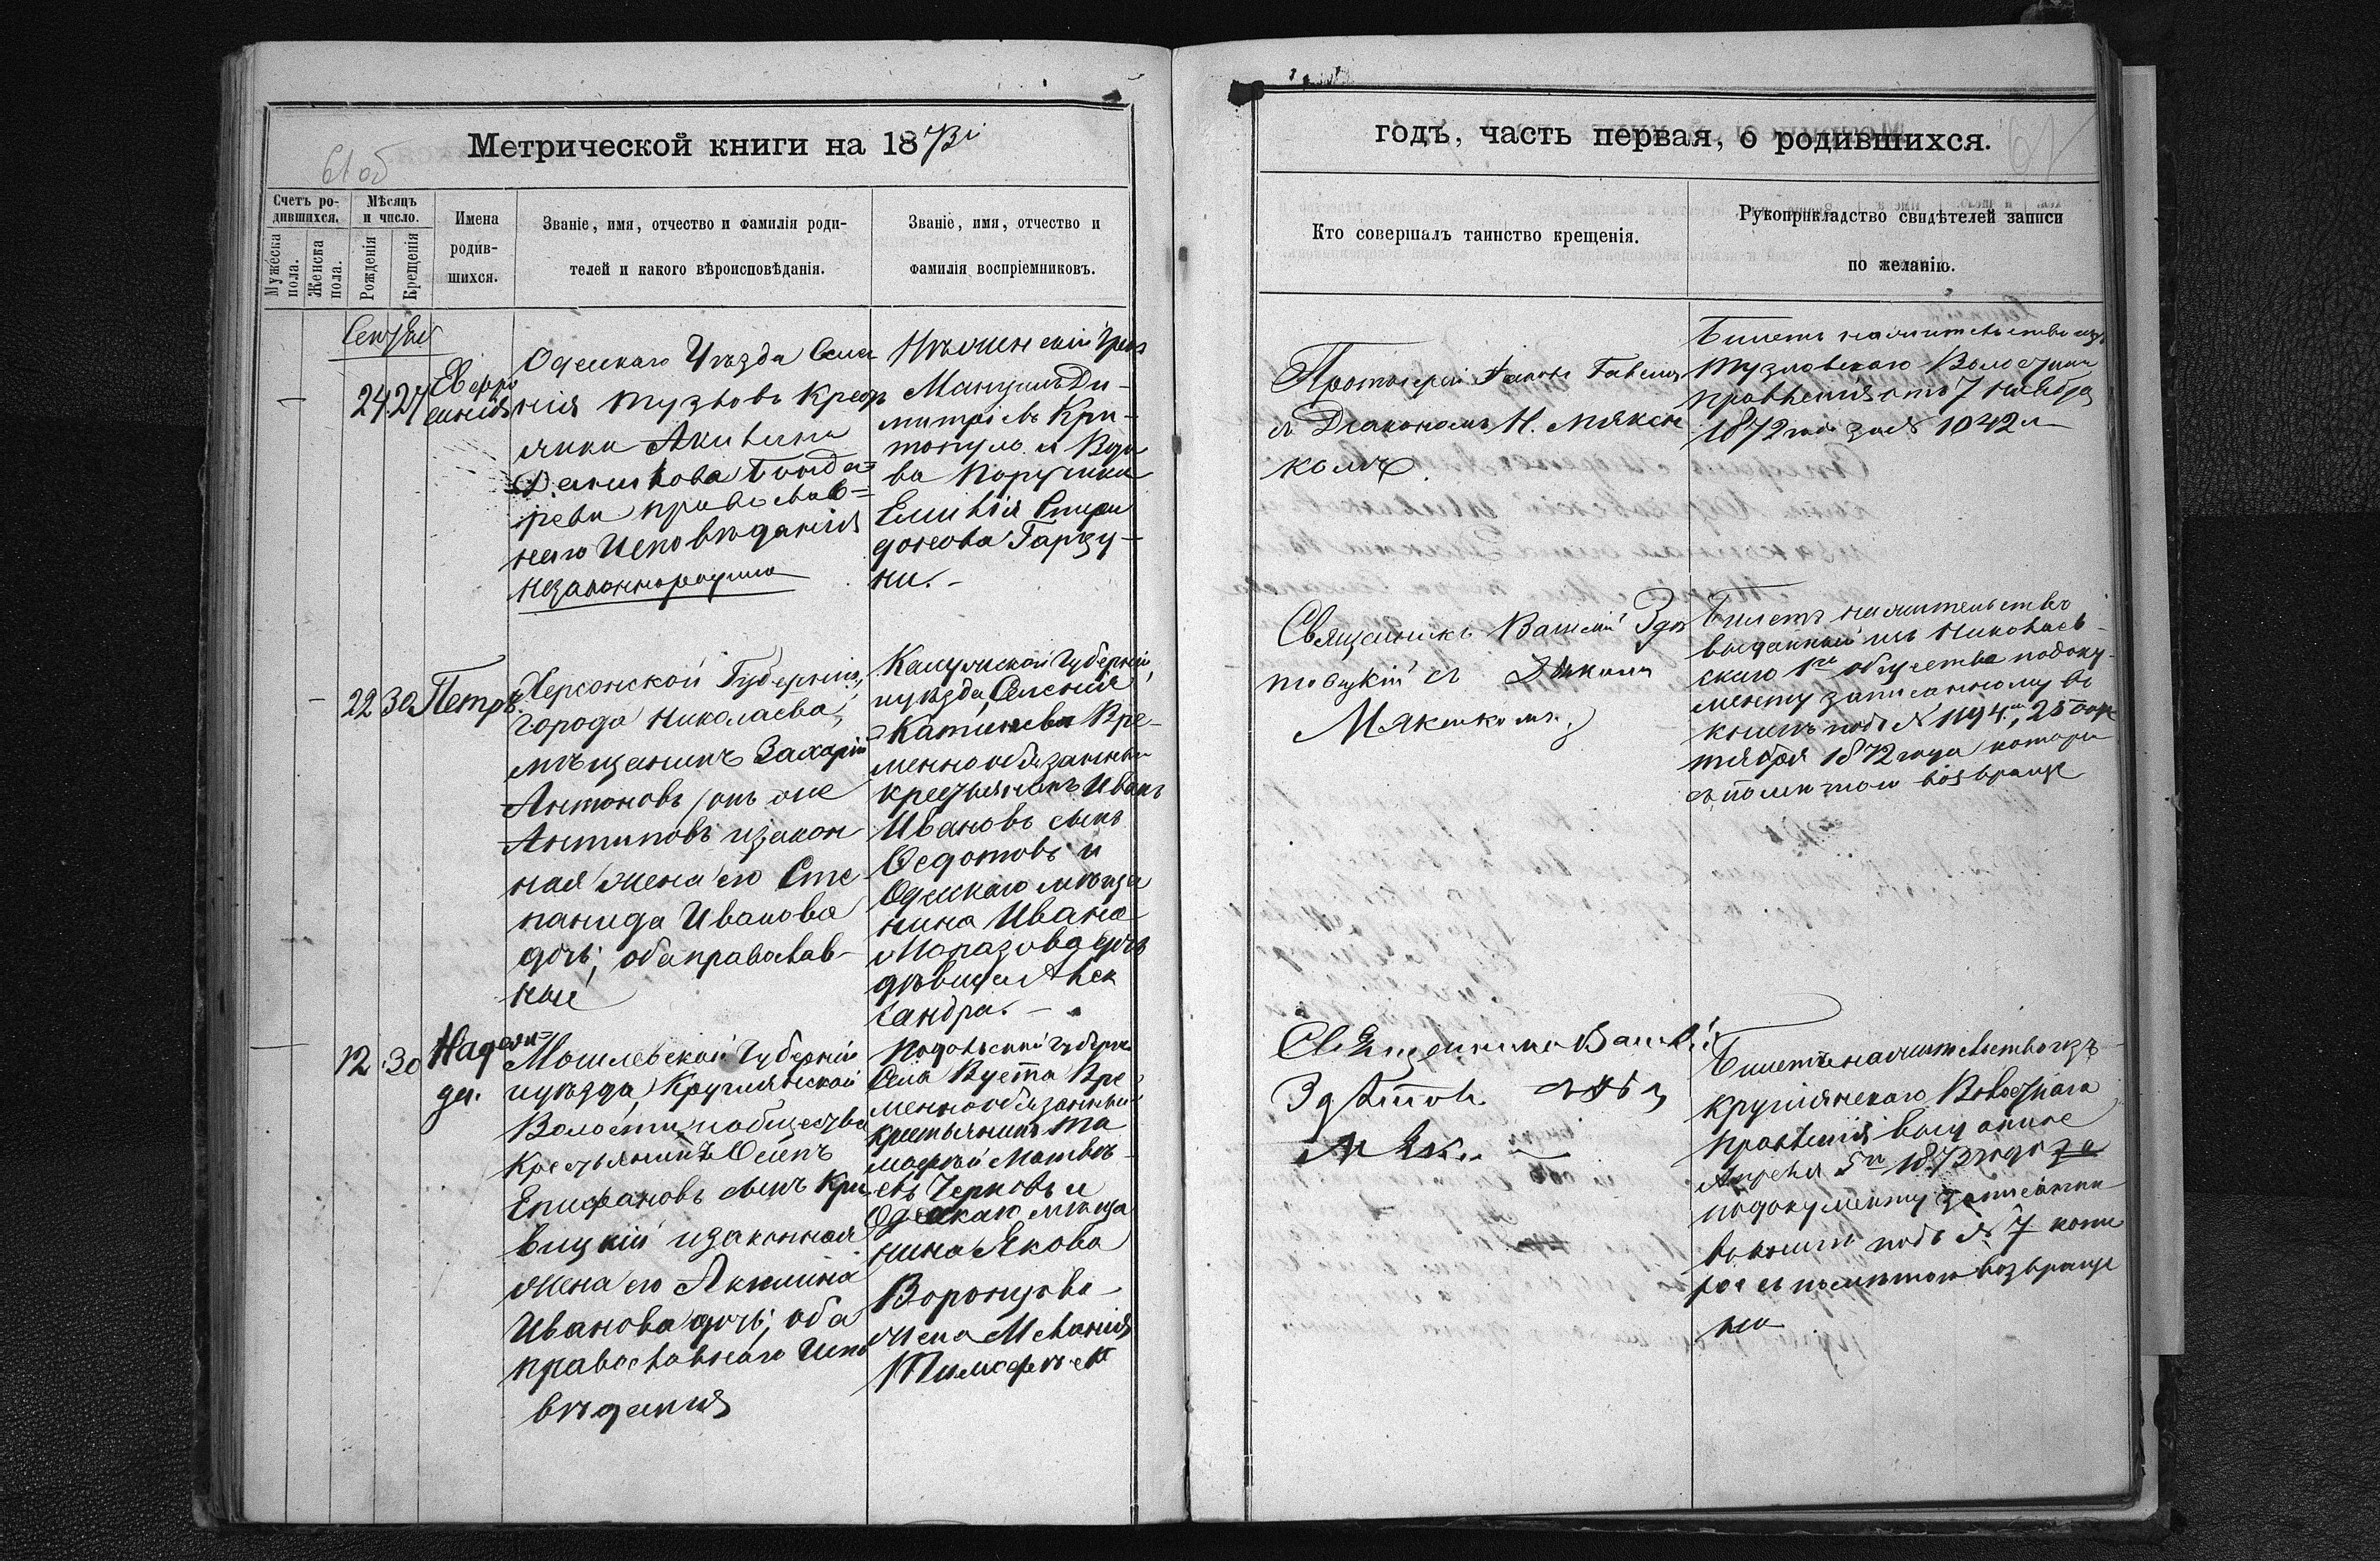 Метрической книги на 1873й
61 об
Счетъ ро-
дившихся.
Мужеска
пола.
Женска
пола.
Мѣсяцъ
и число.
Рожденія
Крещенія
Имена
родив-
шихся.
Званіе, имя, отчество и фамилія роди-
телей и какого вѣроисповѣданія.
Званіе, имя, отчество и
фамилія воспріемниковъ.
24 27
Евфро
синія
Одесскаго Уѣзда
Тузловъ
Акилина
Данилова Бонда=
рева православ=
наго Исповѣданія
незаконнорожд
Мануилъ Ди-
митріевъ Кри-
топуло и Вдо
ва Поручика
Емилія Спири
донова
ни.-
22 30 Петръ.
Херсонской Губерніи,
города Николаева,
мѣщанинъ Захарій
Антоновъ онъ же
Антиповъ и закон
ная жена его Сте-
панида Иванова
дочь, оба православ-
ные
Калужской Губерніи,
уѣзда, Селенія
Вре-
менно обязанный
крестьянинъ Иванъ
Ивановъ сынъ
Ѳедотовъ и
Одесскаго мѣща
нина Ивана
Моразова дочь
дѣвица Алек
сандра.-
12 30
Надеж=
да.
Могилевской Губерніи
уѣзда, Круглянской
Волости и общества
Крестьянинъ Осипъ
Епифановъ сынъ Кри
вицкій и законная
жена его Акилина
Иванова дочь; оба
православнаго Испо
вѣданія
Подольской Губерн
Села Вре
менно обязанный
крестьянинъ
Матвѣ-
евъ Черновъ и
Одесскаго мѣща
нина Якова
Воронцова
жена Меланія
Тимофеев
годъ, часть первая, о родившихся.
Кто совершалъ таинство крещенія.
Рукоприкладство свидѣтелей записи
по желанію.
Протоіерей Гавелія
съ Діакономъ Н. Мякси
комъ
Билетъ на жительство изъ
Тузловскаго Волостнаго
правленія отъ 7 Ноября
1872 года за № 1042м
Священникъ Василій Здѣ
товецкій съ
Мяксикомъ
Билетъ на жительство
выданный изъ Николаев-
скаго 1го общества по доку-
менту записанному въ
книгѣ подъ № 1194м, 25 Ок
тября 1872 года которы
съ помѣткою возвраще
Священникъ Василій
Билетъ на жительство изъ
Круглянскаго Волостнаго
правленія выданное
Апрѣля 5го 1873 года за
по документу записанно
въ книгѣ подъ № 7 кото
рое съ помѣткою возвраще
но